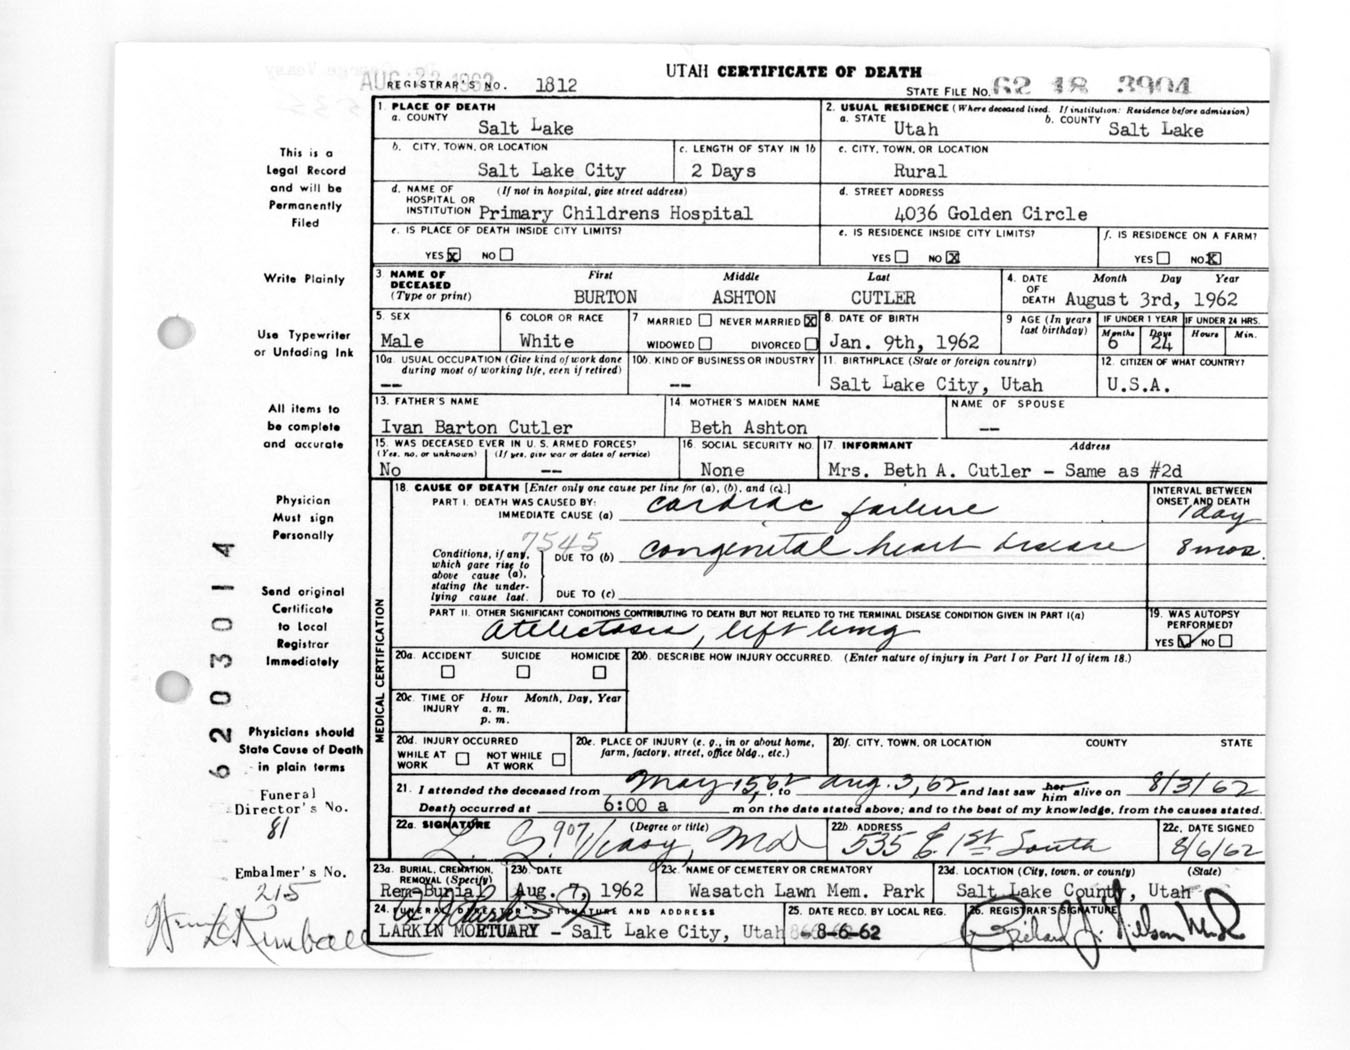 UTAH CERTIFICATE OF DEATH
AUG 22 1962
REGISTRAR'S NO. 1812
STATE FILE NO. 62 18 3904
This is a
Legal Record
and will be
Permanently
Filed
Write Plainly
Use Typewriter
or Unfading Ink
All items to
be complete
and accurate
Physician
Must sign
Personally
Send original
Certificate
to Local
Registrar
Immediately
Physicians should
State Cause of Death
in plain terms
Funeral
Director's No.
81
Embalmer's No.
215
Kimball
62 03014
1. PLACE OF DEATH
a. COUNTY Salt Lake
2. USUAL RESIDENCE (Where deceased lived. If institution: Residence before admission)
a. STATE Utah b. COUNTY Salt Lake
b. CITY, TOWN, OR LOCATION Salt Lake City
c. LENGTH OF STAY IN 1b 2 Days
c. CITY, TOWN, OR LOCATION Rural
d. NAME OF HOSPITAL OR INSTITUTION (If not in hospital, give street address) Primary Childrens Hospital
d. STREET ADDRESS 4036 Golden Circle
e. IS PLACE OF DEATH INSIDE CITY LIMITS? YES X NO
e. IS RESIDENCE INSIDE CITY LIMITS? YES NO X
f. IS RESIDENCE ON A FARM? YES NO X
3. NAME OF DECEASED (Type or print) First BURTON Middle ASHTON Last CUTLER
4. DATE OF DEATH Month Day Year August 3rd, 1962
5. SEX Male
6. COLOR OR RACE White
7. MARRIED NEVER MARRIED X WIDOWED DIVORCED
8. DATE OF BIRTH Jan. 9th, 1962
9. AGE (In years last birthday) IF UNDER 1 YEAR Months 6 Days 24 IF UNDER 24 HRS. Hours Min.
10a. USUAL OCCUPATION (Give kind of work done during most of working life, even if retired) --
10b. KIND OF BUSINESS OR INDUSTRY --
11. BIRTHPLACE (State or foreign country) Salt Lake City, Utah
12. CITIZEN OF WHAT COUNTRY? U.S.A.
13. FATHER'S NAME Ivan Barton Cutler
14. MOTHER'S MAIDEN NAME Beth Ashton
NAME OF SPOUSE --
15. WAS DECEASED EVER IN U.S. ARMED FORCES? (Yes, no, or unknown) No (If yes, give war or dates of service) --
16. SOCIAL SECURITY NO. None
17. INFORMANT Address Mrs. Beth A. Cutler - Same as #2d
MEDICAL CERTIFICATION
18. CAUSE OF DEATH [Enter only one cause per line for (a), (b), and (c).]
INTERVAL BETWEEN ONSET AND DEATH
PART I. DEATH WAS CAUSED BY:
IMMEDIATE CAUSE (a) cardiac failure 1 day
7545
Conditions, if any, which gave rise to above cause (a), stating the underlying cause last.
DUE TO (b) congenital heart disease 8 mos.
DUE TO (c)
PART II. OTHER SIGNIFICANT CONDITIONS CONTRIBUTING TO DEATH BUT NOT RELATED TO THE TERMINAL DISEASE CONDITION GIVEN IN PART I(a)
Atelectasis, left lung
19. WAS AUTOPSY PERFORMED? YES NO
20a. ACCIDENT SUICIDE HOMICIDE
20b. DESCRIBE HOW INJURY OCCURRED. (Enter nature of injury in Part I or Part II of item 18.)
20c. TIME OF INJURY Hour a. m. p. m. Month, Day, Year
20d. INJURY OCCURRED WHILE AT WORK NOT WHILE AT WORK
20e. PLACE OF INJURY (e. g., in or about home, farm, factory, street, office bldg., etc.)
20f. CITY, TOWN, OR LOCATION COUNTY STATE
21. I attended the deceased from May 15, 62 to Aug. 3, 62 and last saw her him alive on 8/3/62
Death occurred at 6:00 a m on the date stated above; and to the best of my knowledge, from the causes stated.
22a. SIGNATURE (Degree or title) L. G. Veasy, MD
22b. ADDRESS 535 E 1st South
22c. DATE SIGNED 8/6/62
23a. BURIAL, CREMATION, REMOVAL (Specify) Rem-Burial
23b. DATE Aug. 7, 1962
23c. NAME OF CEMETERY OR CREMATORY Wasatch Lawn Mem. Park
23d. LOCATION (City, town, or county) (State) Salt Lake County, Utah
24. FUNERAL DIRECTOR'S SIGNATURE AND ADDRESS
LARKIN MORTUARY - Salt Lake City, Utah
25. DATE RECD. BY LOCAL REG. 8-6-62
26. REGISTRAR'S SIGNATURE